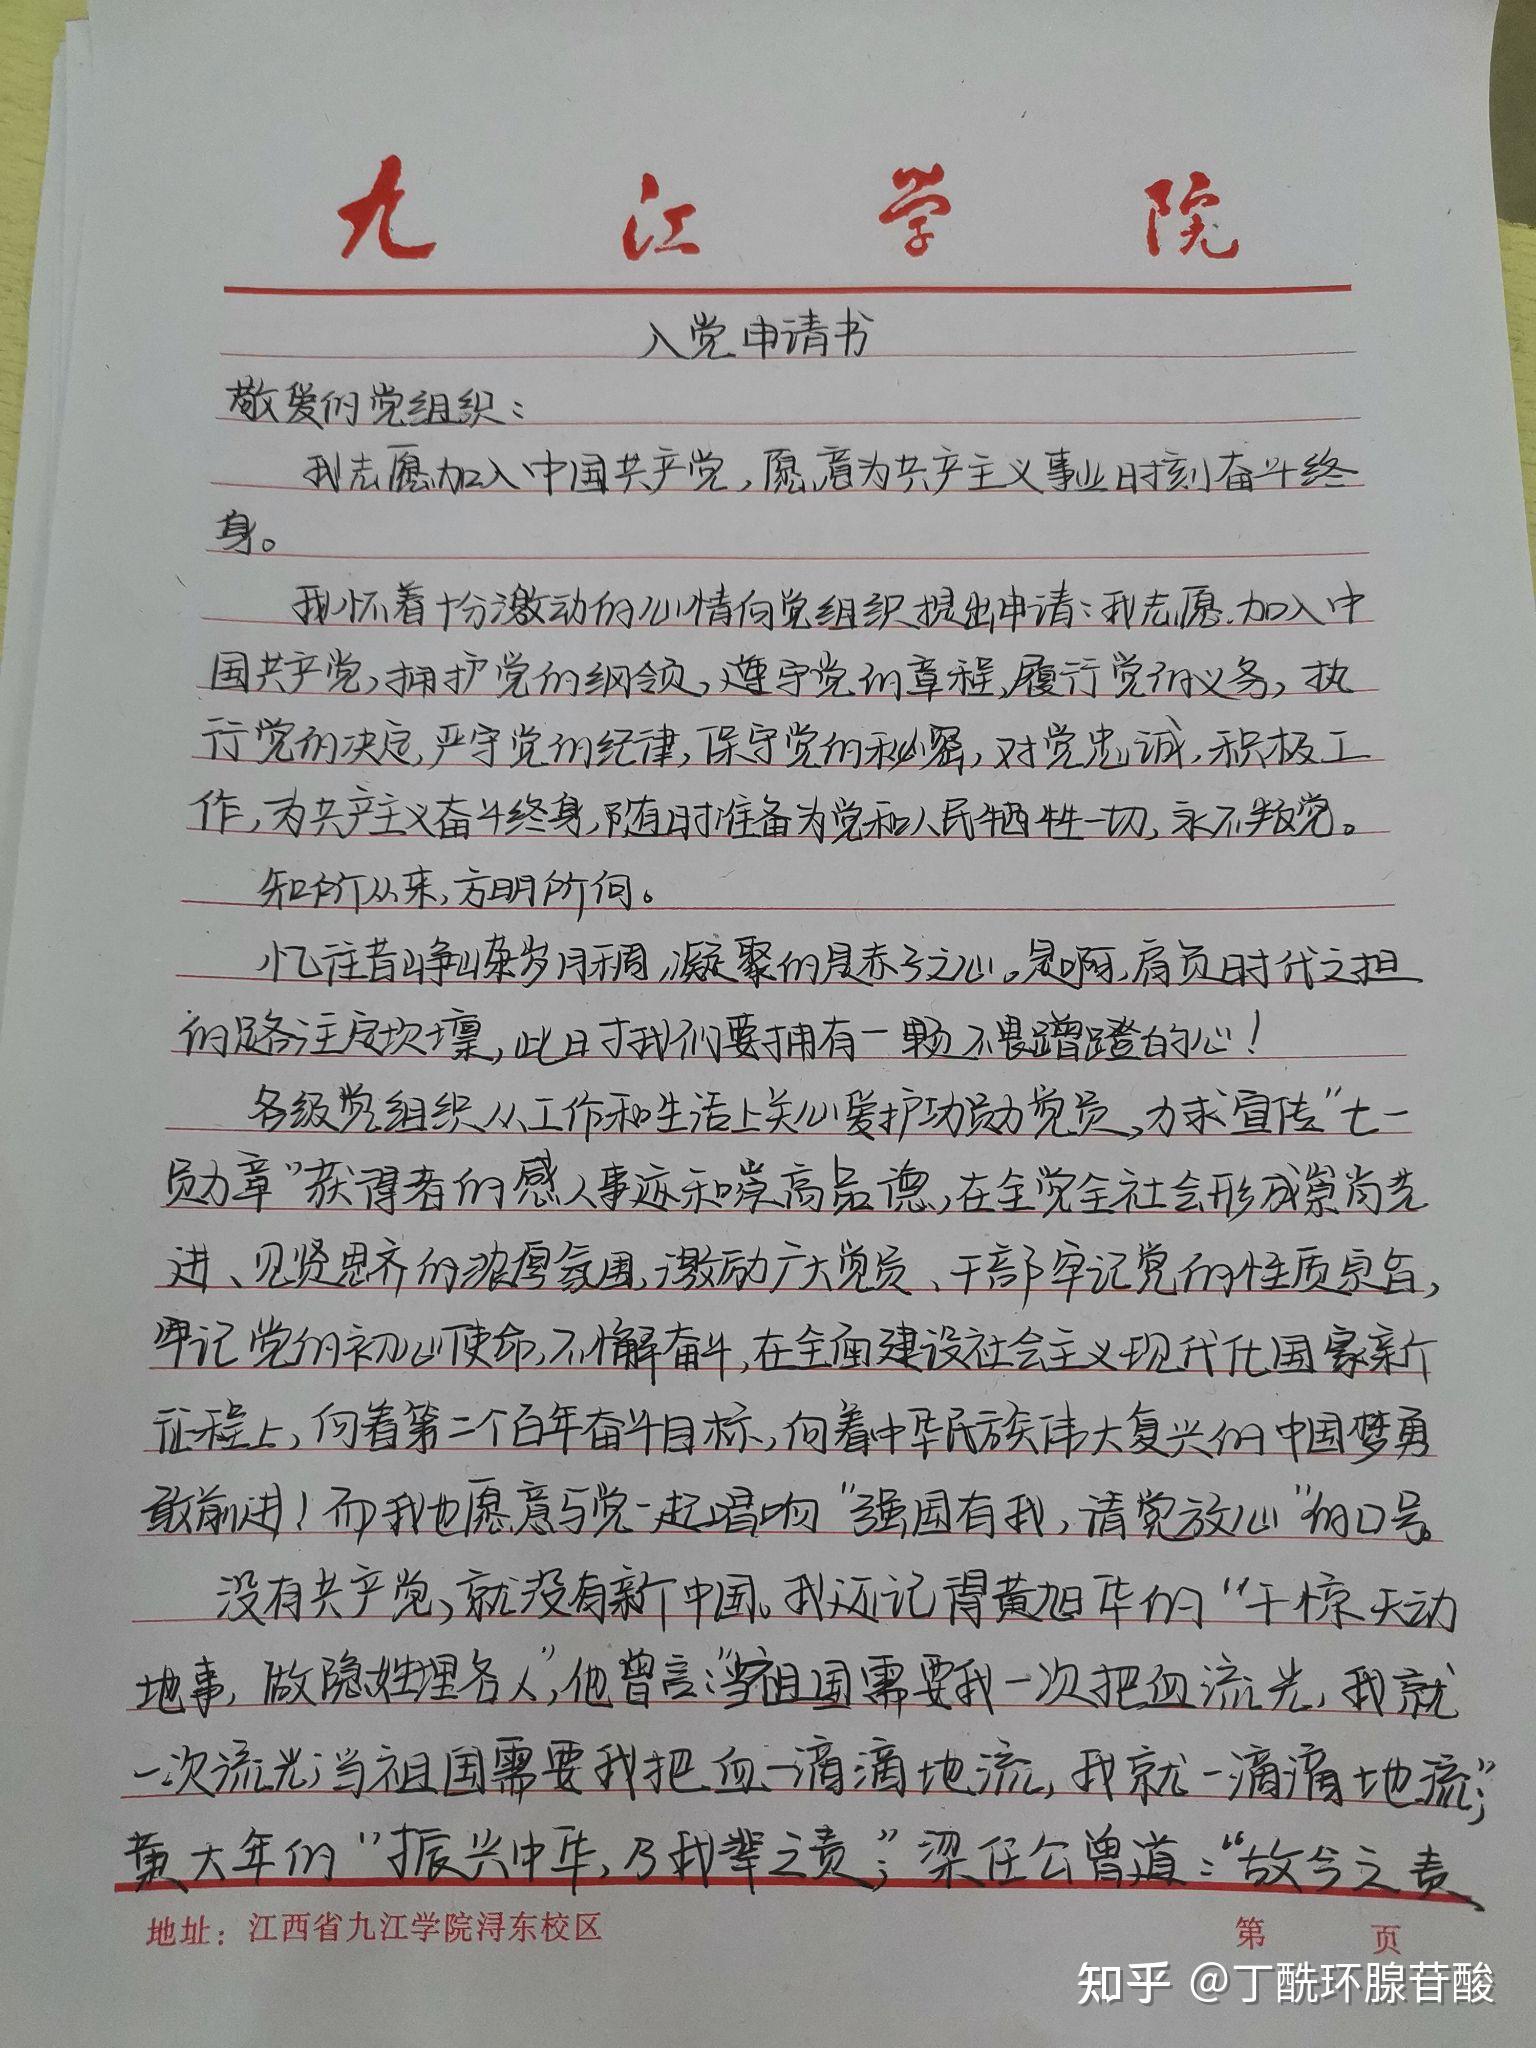 九江学院
入党申请书
敬爱的党组织：
我志愿加入中国共产党，愿意为共产主义事业时刻奋斗终
身。
我怀着十分激动的心情向党组织提出申请：我志愿加入中
国共产党，拥护党的纲领，遵守党的章程，履行党的义务，执
行党的决定，严守党的纪律，保守党的秘密，对党忠诚，积极工
作，为共产主义奋斗终身，随时准备为党和人民牺牲一切，永不叛党。
知所从来，方明所向。
忆往昔峥嵘岁月稠，凝聚的是赤子之心。是啊，肩负时代之担
的路注定坎壈，此时我们要拥有一颗不畏蹭蹬的心！
各级党组织从工作和生活上关心爱护功勋党员，力求宣传“七一
勋章”获得者的感人事迹和崇高品德，在全党全社会形成崇尚先
进、见贤思齐的浓厚氛围，激励广大党员、干部牢记党的性质宗旨，
牢记党的初心使命，不懈奋斗，在全面建设社会主义现代化国家新
征程上，向着第二个百年奋斗目标，向着中华民族伟大复兴的中国梦勇
敢前进！而我也愿意与党一起唱响“强国有我，请党放心”的口号。
没有共产党，就没有新中国。我还记得黄旭华的“干惊天动
地事，做隐姓埋名人”，他曾言：“当祖国需要我一次把血流光，我就
一次流光；当祖国需要我把血一滴滴地流，我就一滴滴地流”；
黄大年的“振兴中华，乃我辈之责”；梁任公曾道：“故今之责
地址：江西省九江学院浔东校区
第 页
知乎 @丁酰环腺苷酸